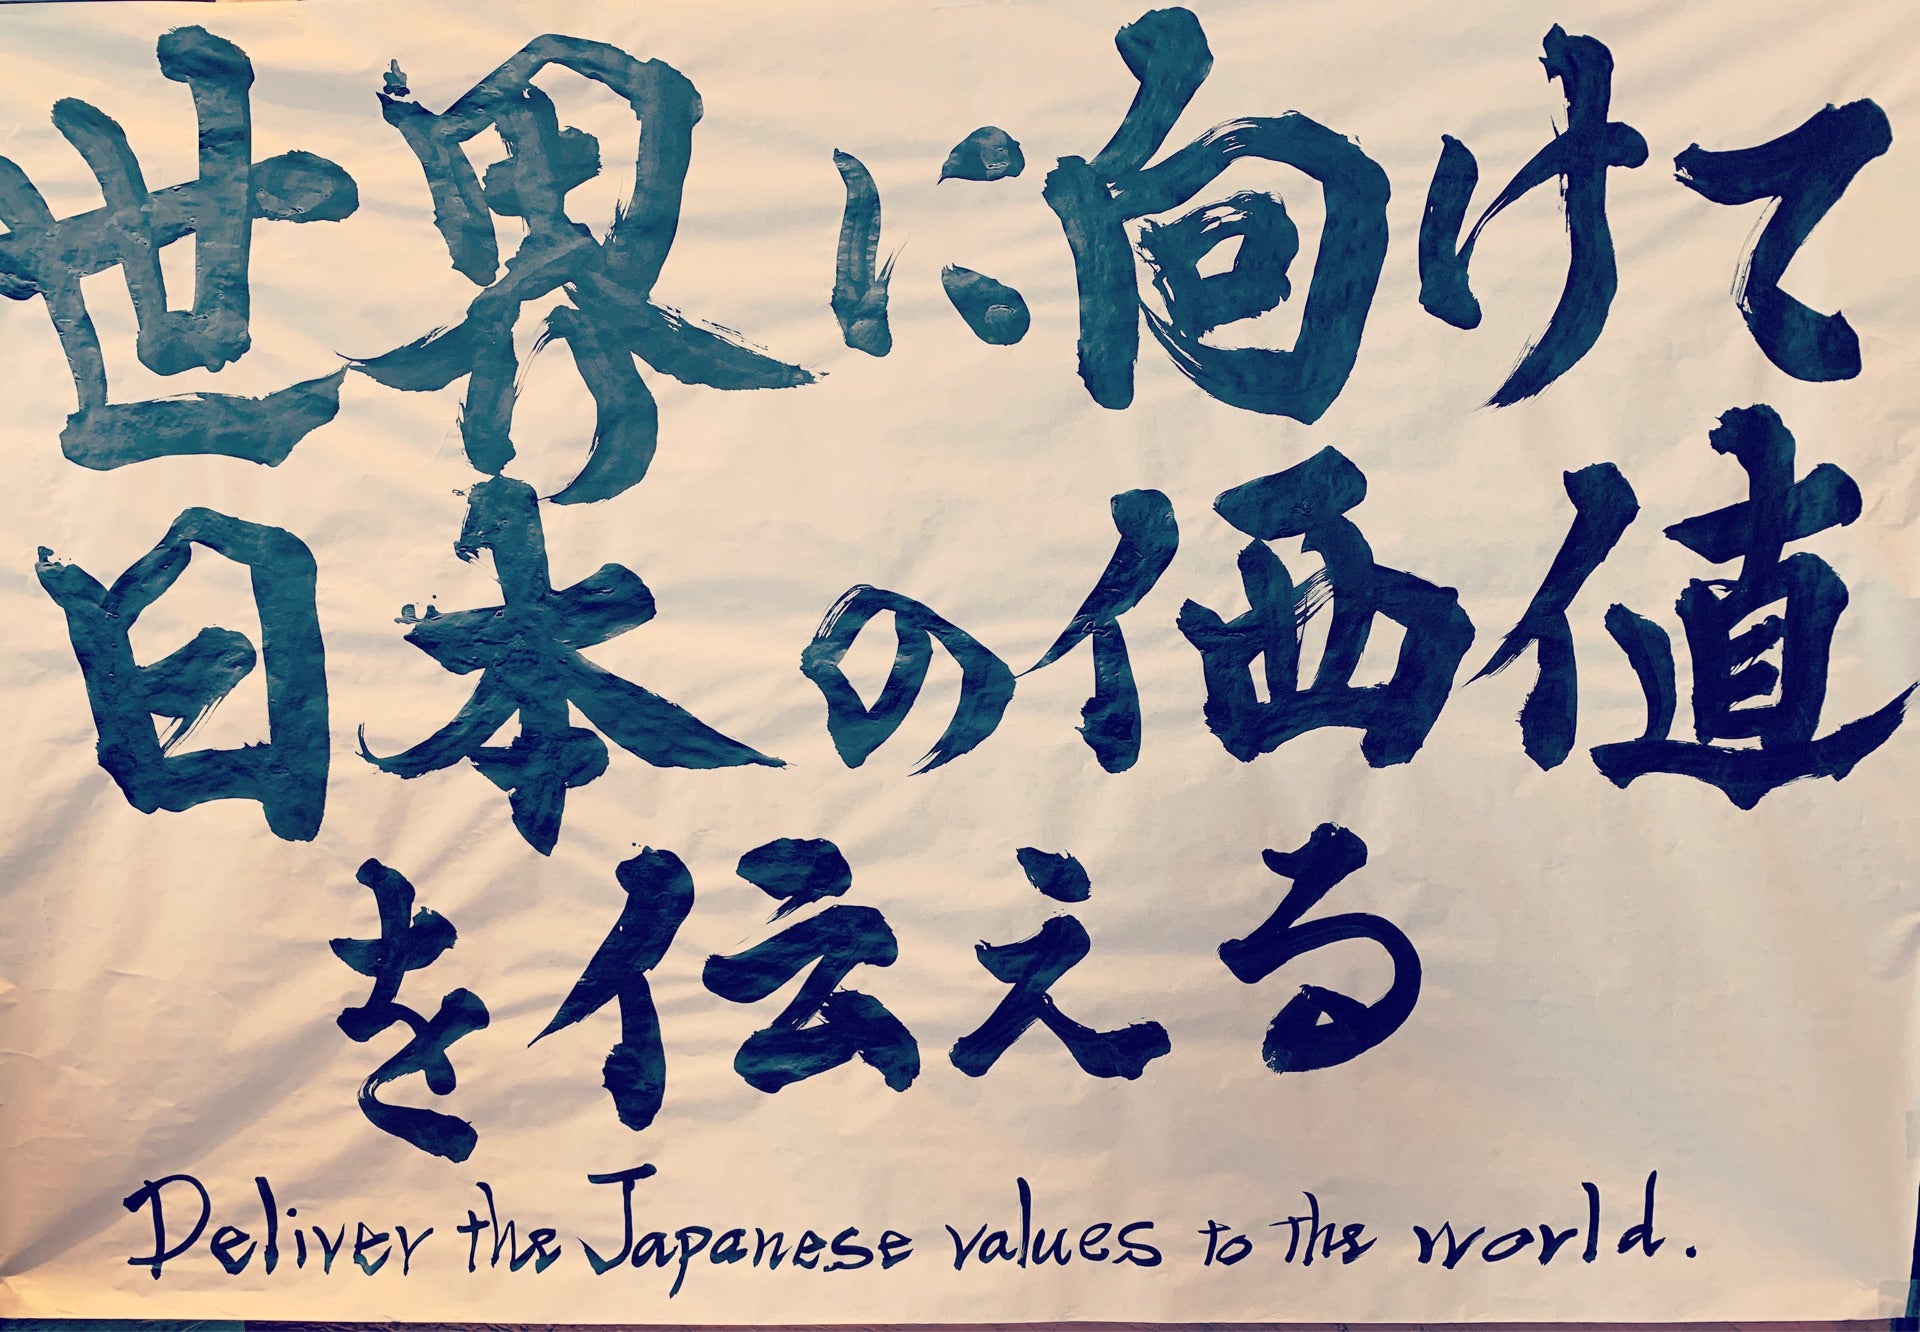 世界に向けて
日本の価値
を伝える
Deliver the Japanese values to the world.